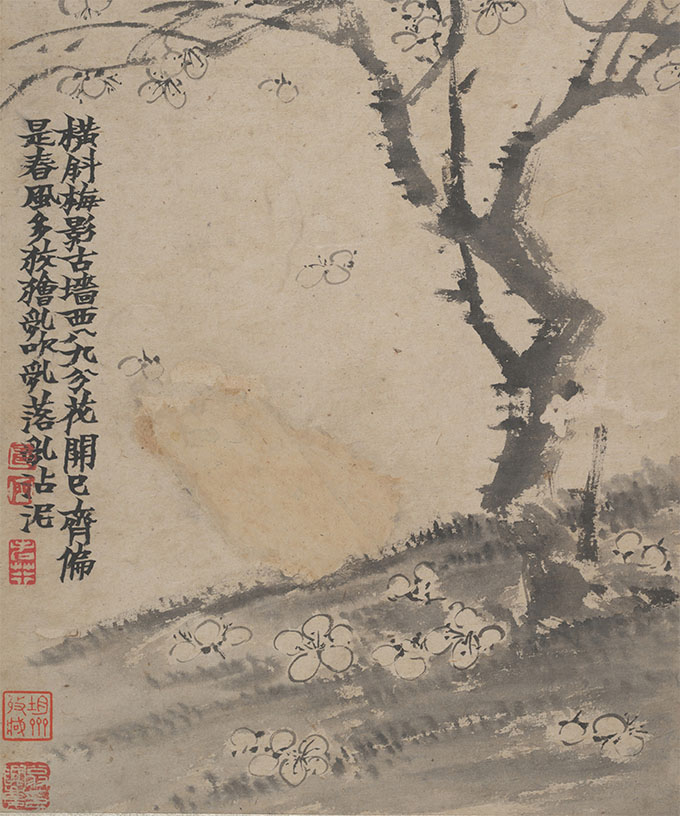 橫斜梅影古墻西八九分花開已齊偏
是春風多狡獪亂吹亂落亂沾泥